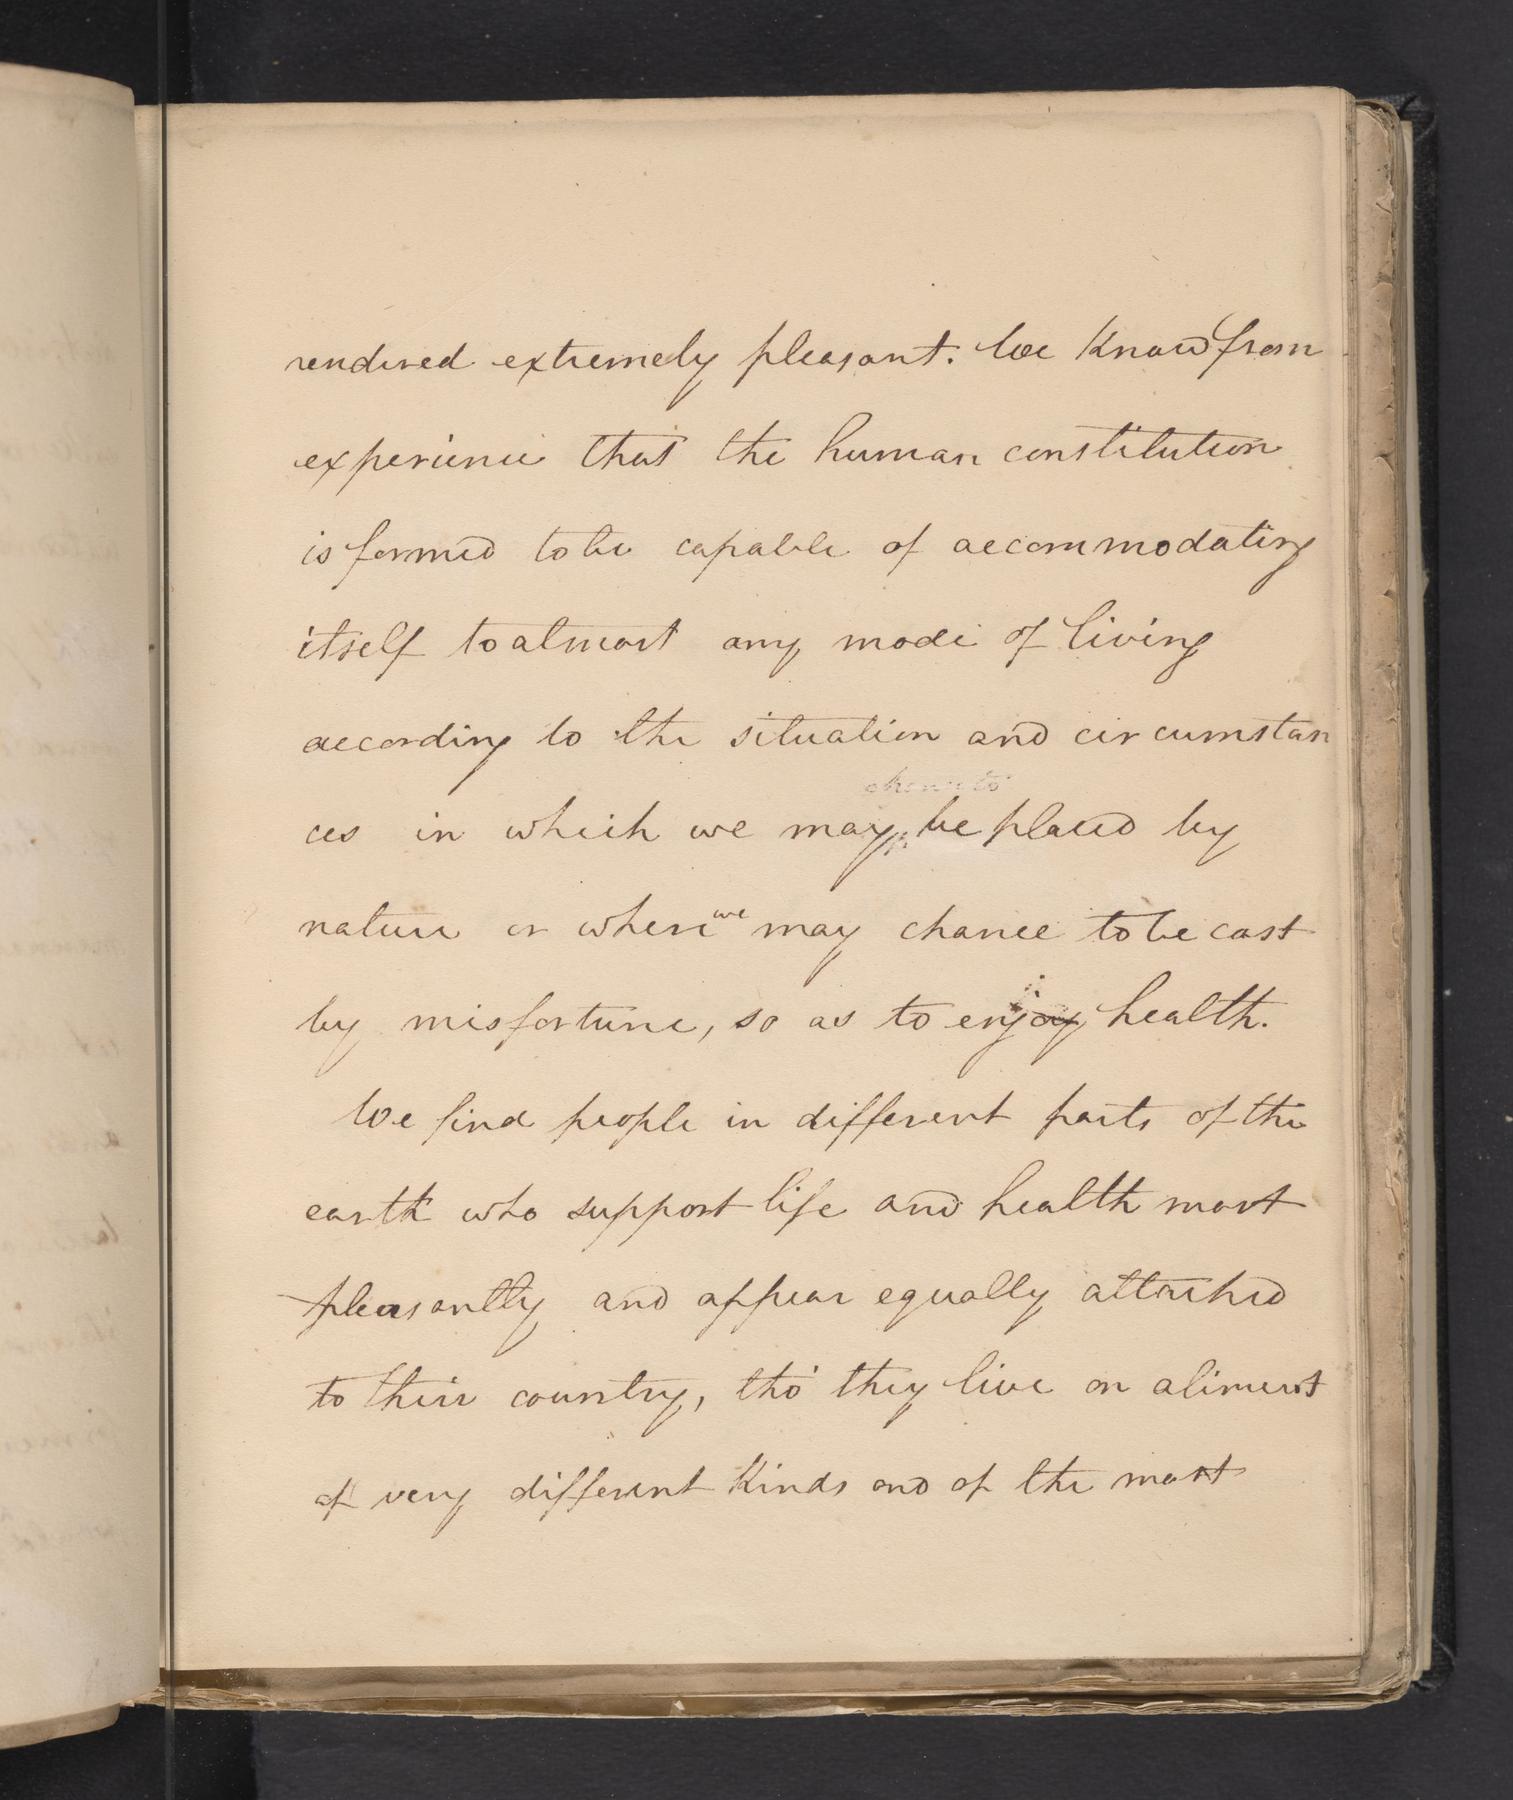 rendered extremely pleasant. We know from
experience that the human constitution
is formed to be capable of accommodating
itself to almost any mode of living
according to the situation and circumstan
ces in which we may be placed by
nature or where we may chance to be cast
by misfortune, so as to enjoy health.
We find people in different parts of the
earth who support life and health most
pleasantly and appear equally attached
to their country, tho' they live on aliment
of very different kinds and of the most